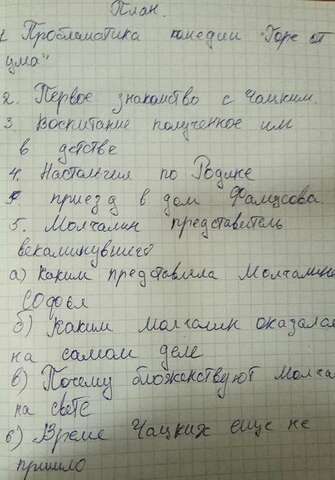 План.
1 Проблематика комедии "Горе от
ума"
2. Первое знакомство с Чацким.
3 Воспитание полученное им
в детстве
4. Настольгия по Родине
приезд в дом Фамусова.
5. Молчалин представитель
векаминувшей
а) Каким представила Молчалина
София
б) Каким молчалин оказался
на самом деле
в) Почему бложенствуют Молча
на свете
6) Время Чацких еще не
пришло